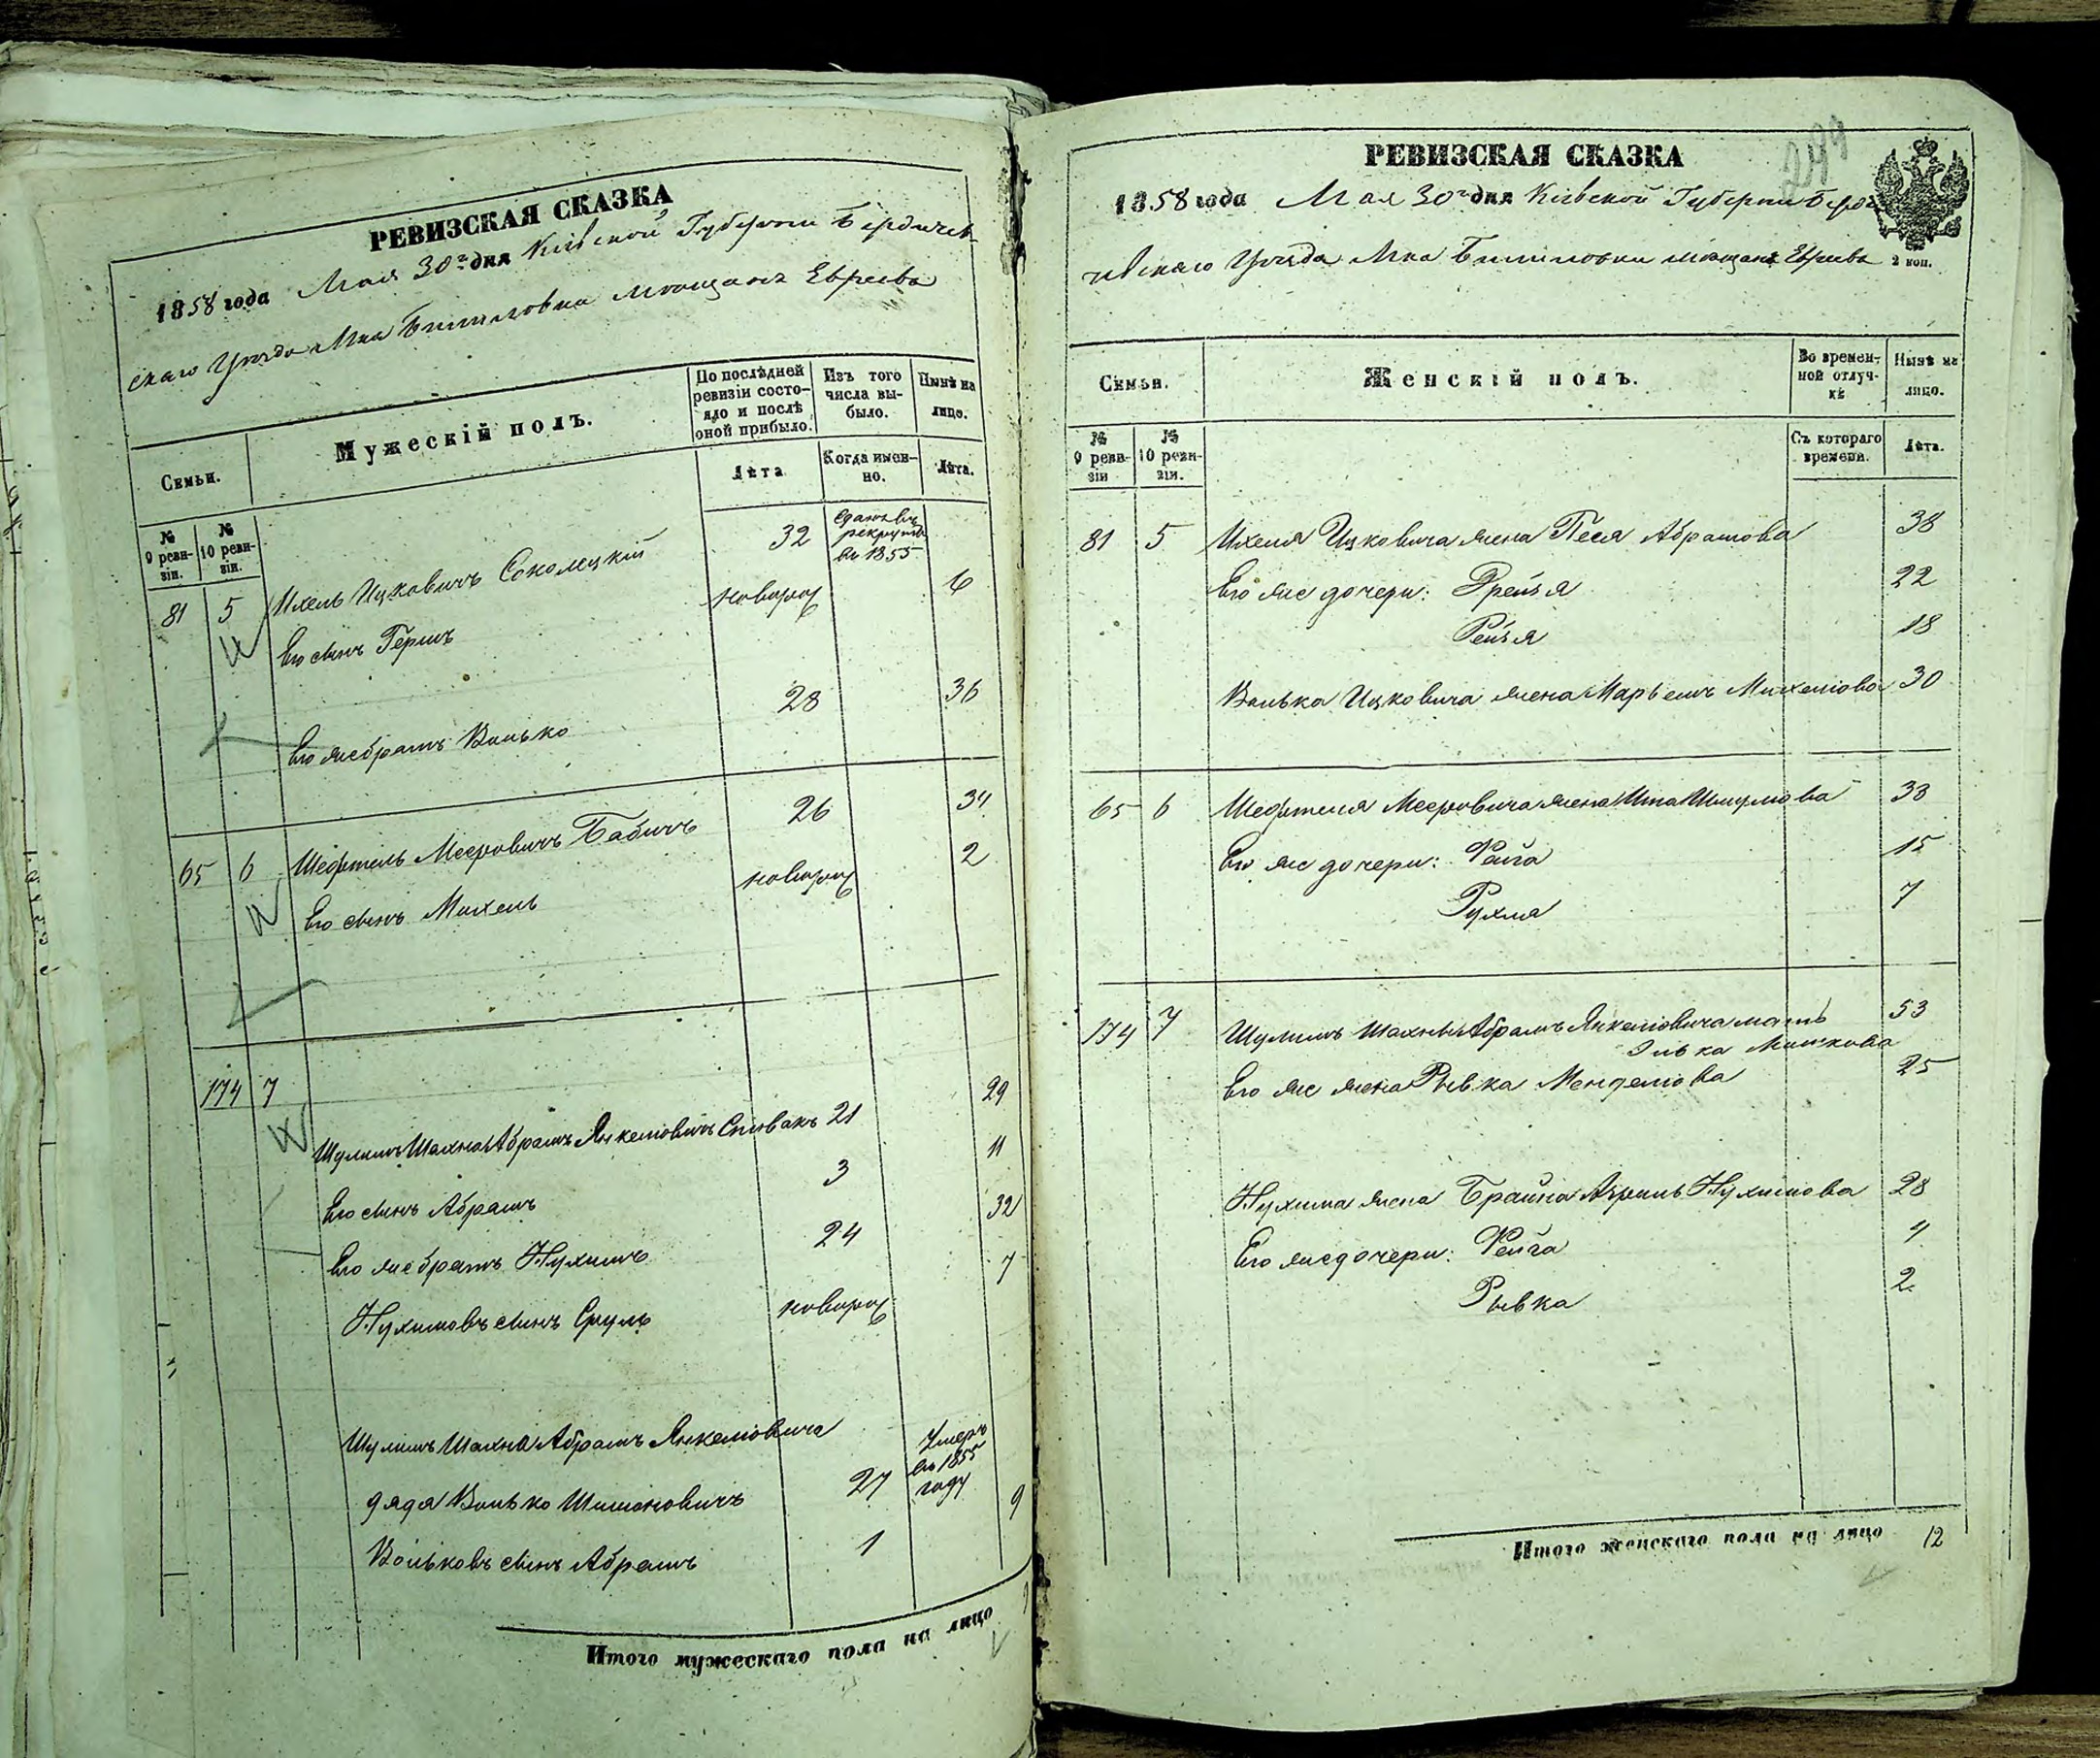 РЕВИЗСКАЯ СКАЗКА
1858 года Мая 30го дня Кіевской Губерніи Бердичев-
скаго Уѣзда Мка Бѣлиловки мѣщанъ Евреевъ
Семьи.
Мужескій полъ.
По послѣдней ревизіи состо-яло и послѣ оной прибыло.
Изъ того числа вы-было.
Нынѣ на лицо.
№ 9 реви-зіи.
№ 10 реви-зіи.
Лѣта
Когда имен-но.
Лѣта.
81 5 Ихель Ицковичъ Соколецкій 32 сданъ въ рекруты въ 1855
Его сынъ Гершъ новорож 6
Его же братъ Волько 28 36
65 6 Шефтель Мееровичъ Бабичъ 26 34
Его сынъ Михель новорож 2
174 7
Шулимъ Шахна Абрамъ Янкелiовичъ Спивакъ 21 29
Его сынъ Абрамъ 3 11
Его же братъ Нухимъ 24 32
Нухимовъ сынъ Сруль новорож 7
Шулимъ Шахна Абрамъ Янкелiовича
дядя Волько Шимоновичъ 27 Умеръ въ 1855 году
Вольковъ сынъ Абрамъ 1 9
Итого мужескаго пола на лицо
РЕВИЗСКАЯ СКАЗКА
1858 года Мая 30го дня Кіевской Губерніи Берди
чевскаго Уѣзда Мка Бѣлиловки мѣщанъ Евреевъ 2 коп.
Семьи.
Женскій полъ.
Во времен-ной отлуч-кѣ
Нынѣ на лицо.
№ 9 реви-зіи
№ 10 реви-зіи.
Съ котораго времени.
Лѣта.
81 5 Ихеля Ицковича жена Песя Абрамова 38
Его же дочери: Фрейда 22
Рейзя 18
Волька Ицковича жена Марьемъ Михелiова 30
65 6 Шефтеля Мееровича жена Ита Шмулiова 33
Его же дочери: Файга 15
Рухля 7
174 7 Шулимъ Шахны Абрамъ Янкелiовича мать 53
Элька Мошкова
Его же жена Рывка Менделiова 25
Нухима жена Брайна Нухимова 28
Его же дочери: Фейга 4
Рывка 2
Итого женскаго пола на лицо 12